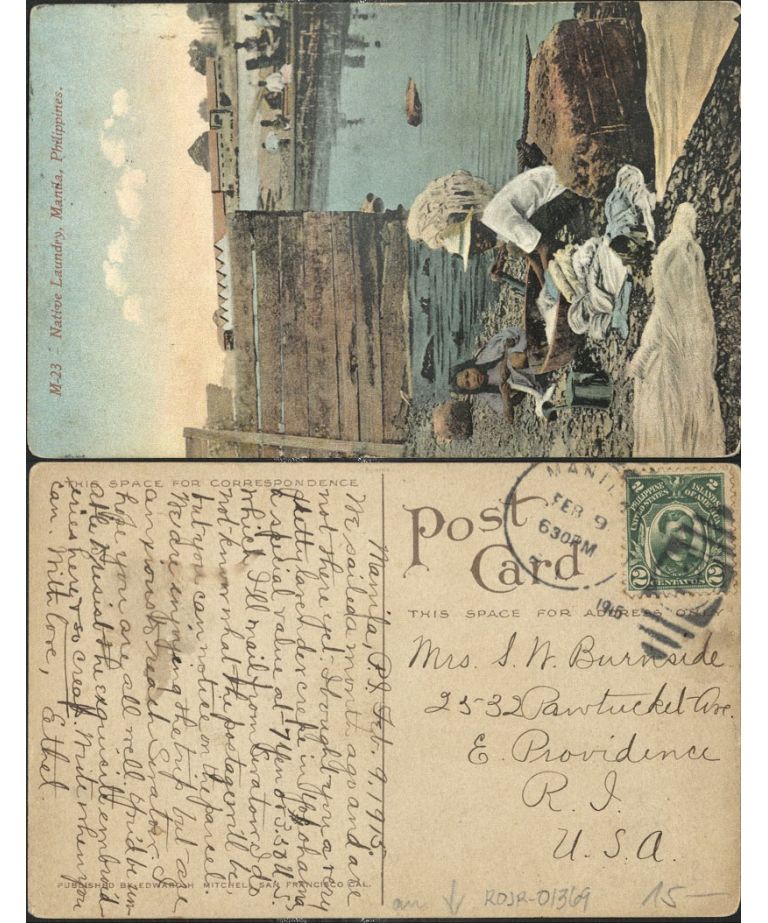 M-23 - Native Laundry, Manila, Philippines.
THIS SPACE FOR CORRESPONDENCE
Manila, P.I. Feb. 9, 1915.
We sailed a month ago and are
not there yet. I bought you a very
pretty lavender crepe in Yokohama
a special value at 7 Yen or 3.50 U.S.
which I'll mail from Seraton. I do
not know what the postage will be,
but you can notice on the parcel.
We are enjoying the trip but are
anxious to reach Seraton. I
hope you are all well. You'll be un-
able to resist the exquisite embroid-
eries here & so cheap. Write when you
can. With love, Ethel.
PUBLISHED BY EDWARD H MITCHELL SAN FRANCISCO CAL.
Post
Card
THIS SPACE FOR ADDRESS ONLY
MANILA
FEB 9
630PM
1915
P.I.
2 PHILIPPINE ISLANDS 2
UNITED STATES OF AMERICA
2 CENTAVOS 2
Mrs. S. W. Burnside
2532 Pawtucket Ave.
E. Providence
R. I.
U. S. A.
ROJR-01369
15-